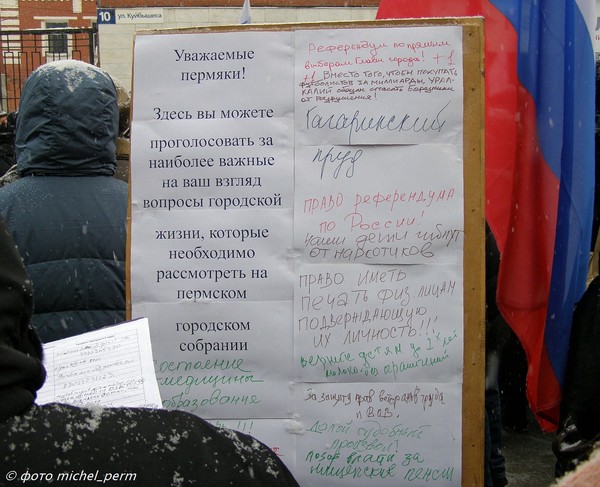 10 ул. Куйбышева
Уважаемые
пермяки!
Здесь вы можете
проголосовать за
наиболее важные
на ваш взгляд
вопросы городской
жизни, которые
необходимо
рассмотреть на
пермском
городском
собрании
медицины
образования
Референдум по прямым
выборам Главы города! +1
+1 Вместо того, чтобы покупать
футболистов за миллиарды, УРАЛ-
КАЛИЙ обязан спасать Березники
от разрушения!
Гагаринский
пруд
ПРАВО референдума
по России!
Наши дети гибнут
от наркотиков
ПРАВО ИМЕТЬ
ПЕЧАТЬ ФИЗ. ЛИЦАМ
ПОДВЕРЖДАЮЩУЮ
ИХ ЛИЧНОСТЬ!!!
верните детям до
За защиту прав ветеранов труда
и В.О.В.
Долой
позор власти за
нищенские пенсии
© фото michel_perm